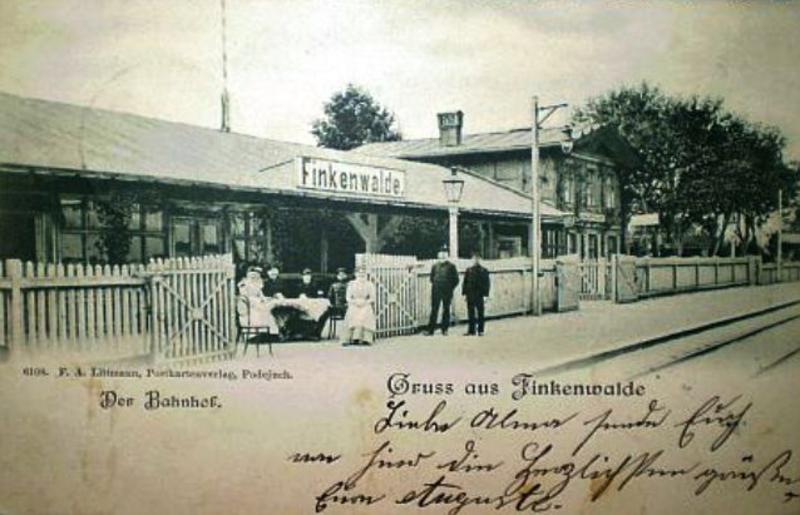 Finkenwalde.
6108. F. A. Littmann, Postkartenverlag, Podejuch.
Der Bahnhof.
Gruss aus Finkenwalde
Liebe Alma sende Euch
hier die Herzlichsten grüße
Eure Auguste.